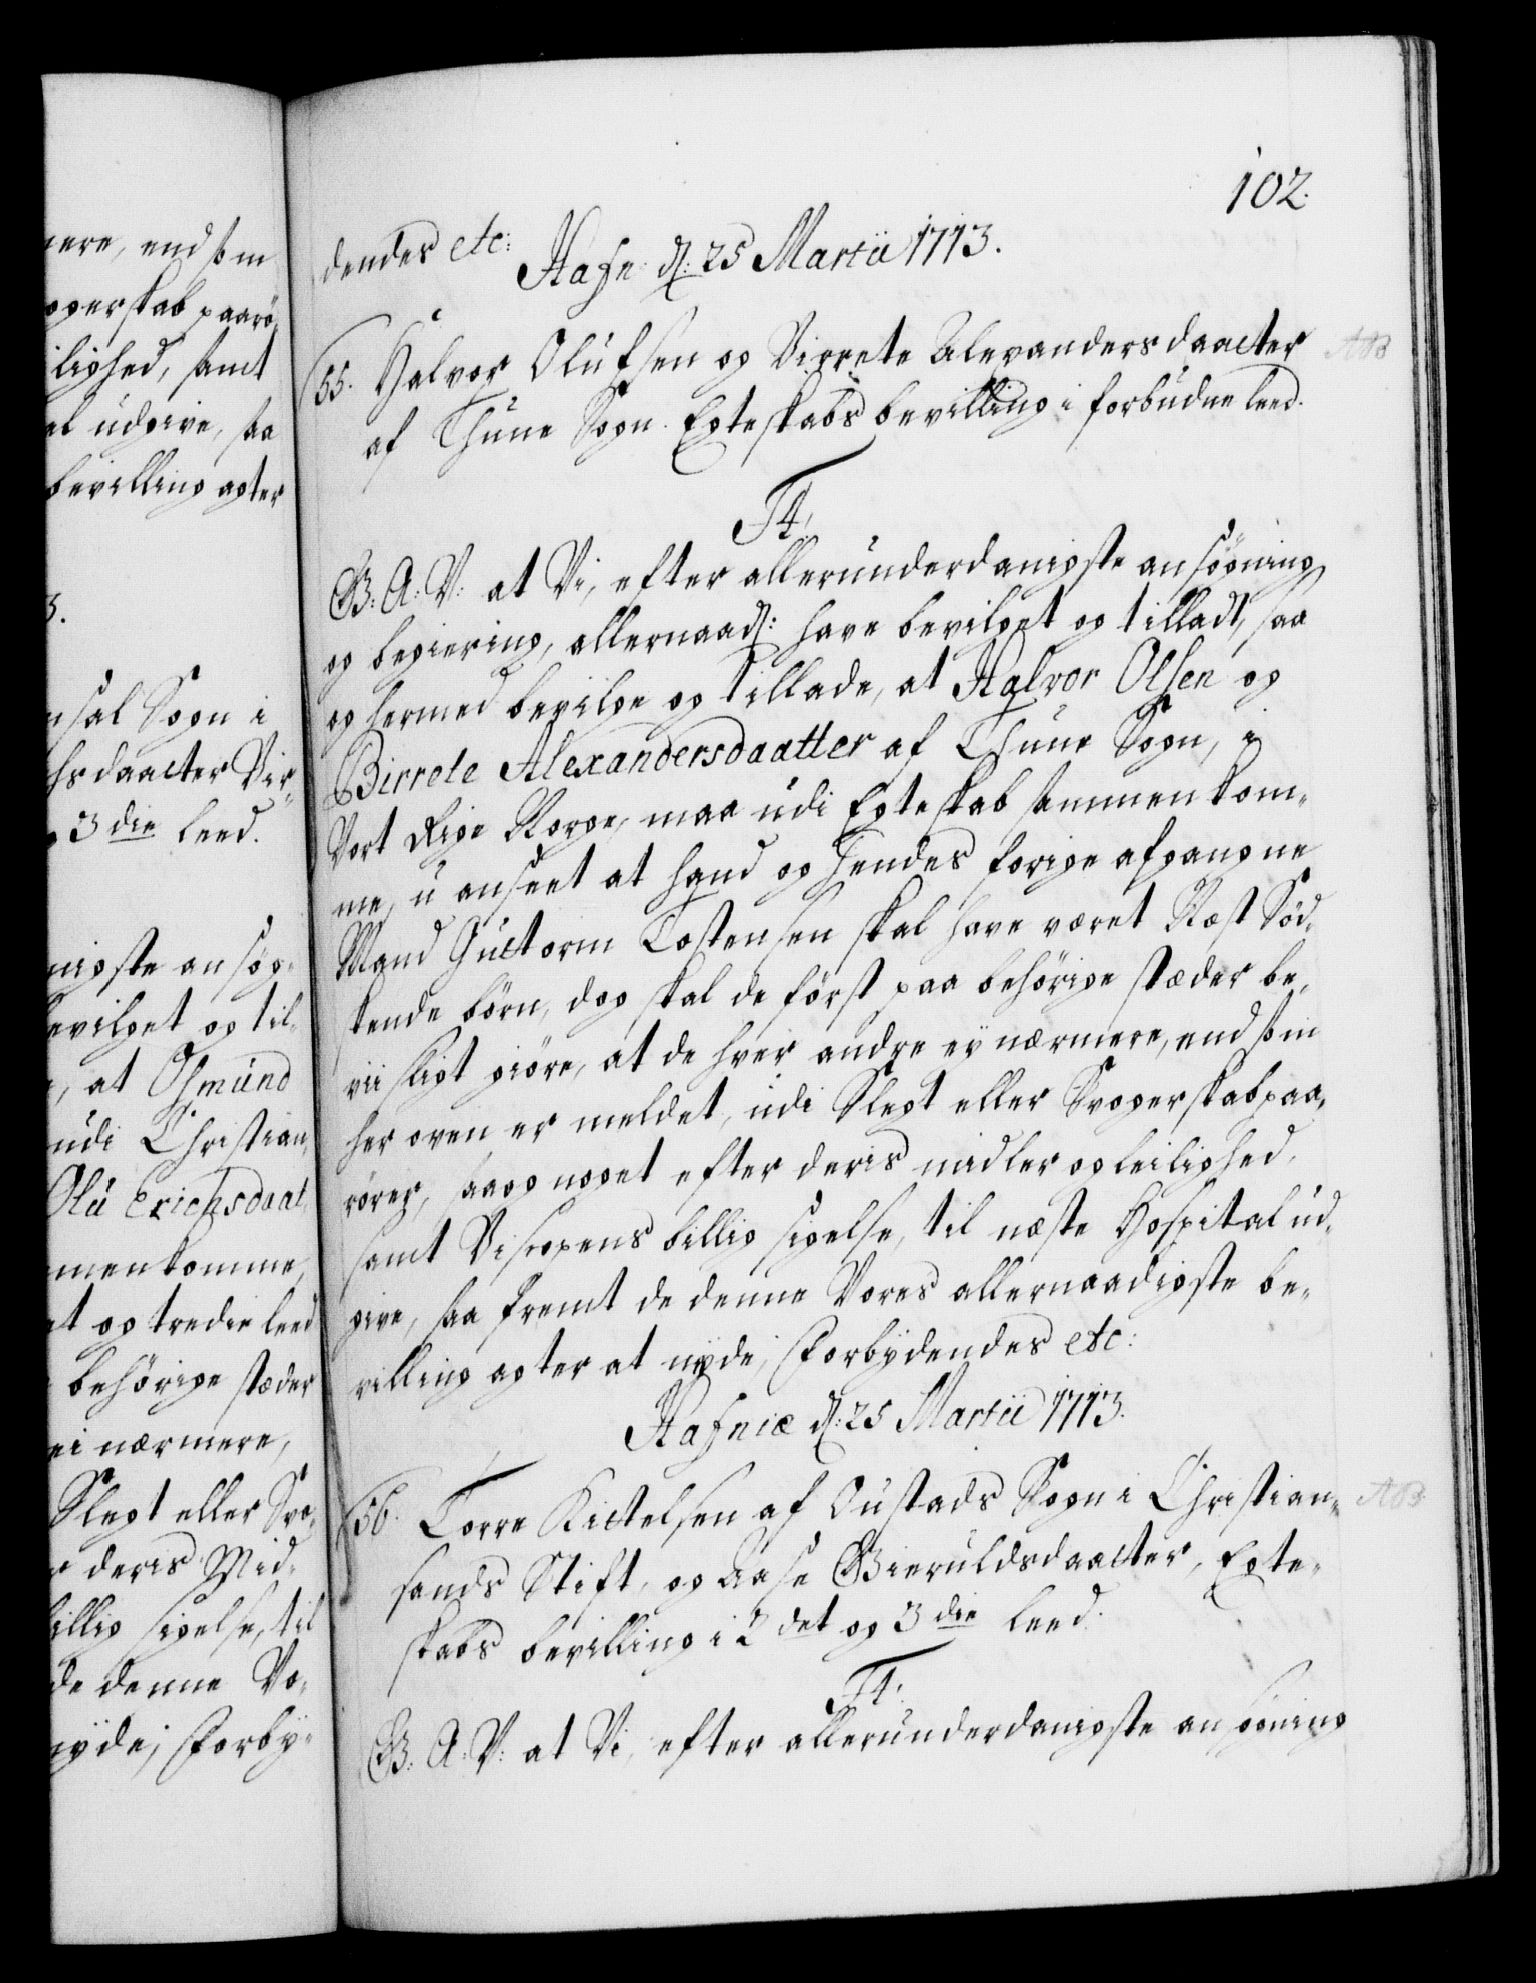 102.
dendes etc:
Hafn: d: 25 Martii 1713.
55. Halvor Olufsen og Birrete Alexandersdaatter
af Thune Sogn. Egteskabs bevilling i forbudne leed.
F4.
G: A: V: at Vi, efter allerunderdanigste ansøgning
og begiering, allernaad: have bevilget og tilladt, saa
og hermed bevilge og tillade, at Halvor Olsen og
Birrete Alexandersdaatter af Thune Sogn, i
Vort Rige Norge, maa udi Egteskab sammenkom-
me, u anseet at hand og hendes forige afgangne
Mand Guttorm Tostensen skal have været Næst Sød-
kende børn, dog skal de først paa behørige stæder be-
viisligt giøre, at de hver andre ey nærmere, end som
her oven er meldet, udi Slegt eller Svogerskab paa-
rører, saa og noget efter deris midler og leilighed,
samt Biscopens billig sigelse, til næste Hospital ud-
give, saa fremt de denne Vores allernaadigste be-
villing agter at nyde, Forbydendes etc:
Hafniæ d: 25 Martii 1713.
56. Torre Kittelsen af Oustads Sogn i Christian-
sands Stift, og Aase Gieruldsdaatter, Egte-
skabs bevilling i 2det og 3die leed.
F4.
G: A: V: at Vi, efter allerunderdanigste ansøgning